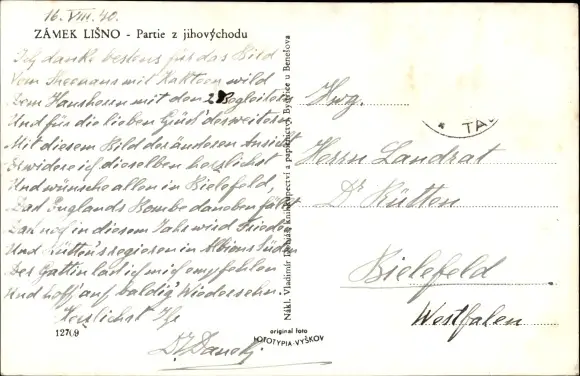 16. VIII. 40.
ZÁMEK LIŠNO - Partie z jihovýchodu
Ich danke bestens für das Bild
Vom mit Kakteen wild
Dem Hausherrn mit den 2 Begleitern
Und für die lieben des weitern
Mit diesem Bild der anderen Ansicht
Erwidere ich dieselben herzlichst
Und wünsche allen in Bielefeld,
Daß Englands Bombe daneben fällt
Daß noch in diesem Jahr wird Frieden
Und Rütten's regieren in Albions Süden
Der Gattin laß ich mich empfehlen
Und hoff' auf baldig' Wiedersehn.
Herzlichst Ihr
Dr.
12709
Nákl. Vladimír knihkupectví a papírnictví, Bystřice u Benešova
original foto
FOTOTYPIA-VYŠKOV
* TA
Herrn Landrat
Dr Rütten
Bielefeld
Westfalen